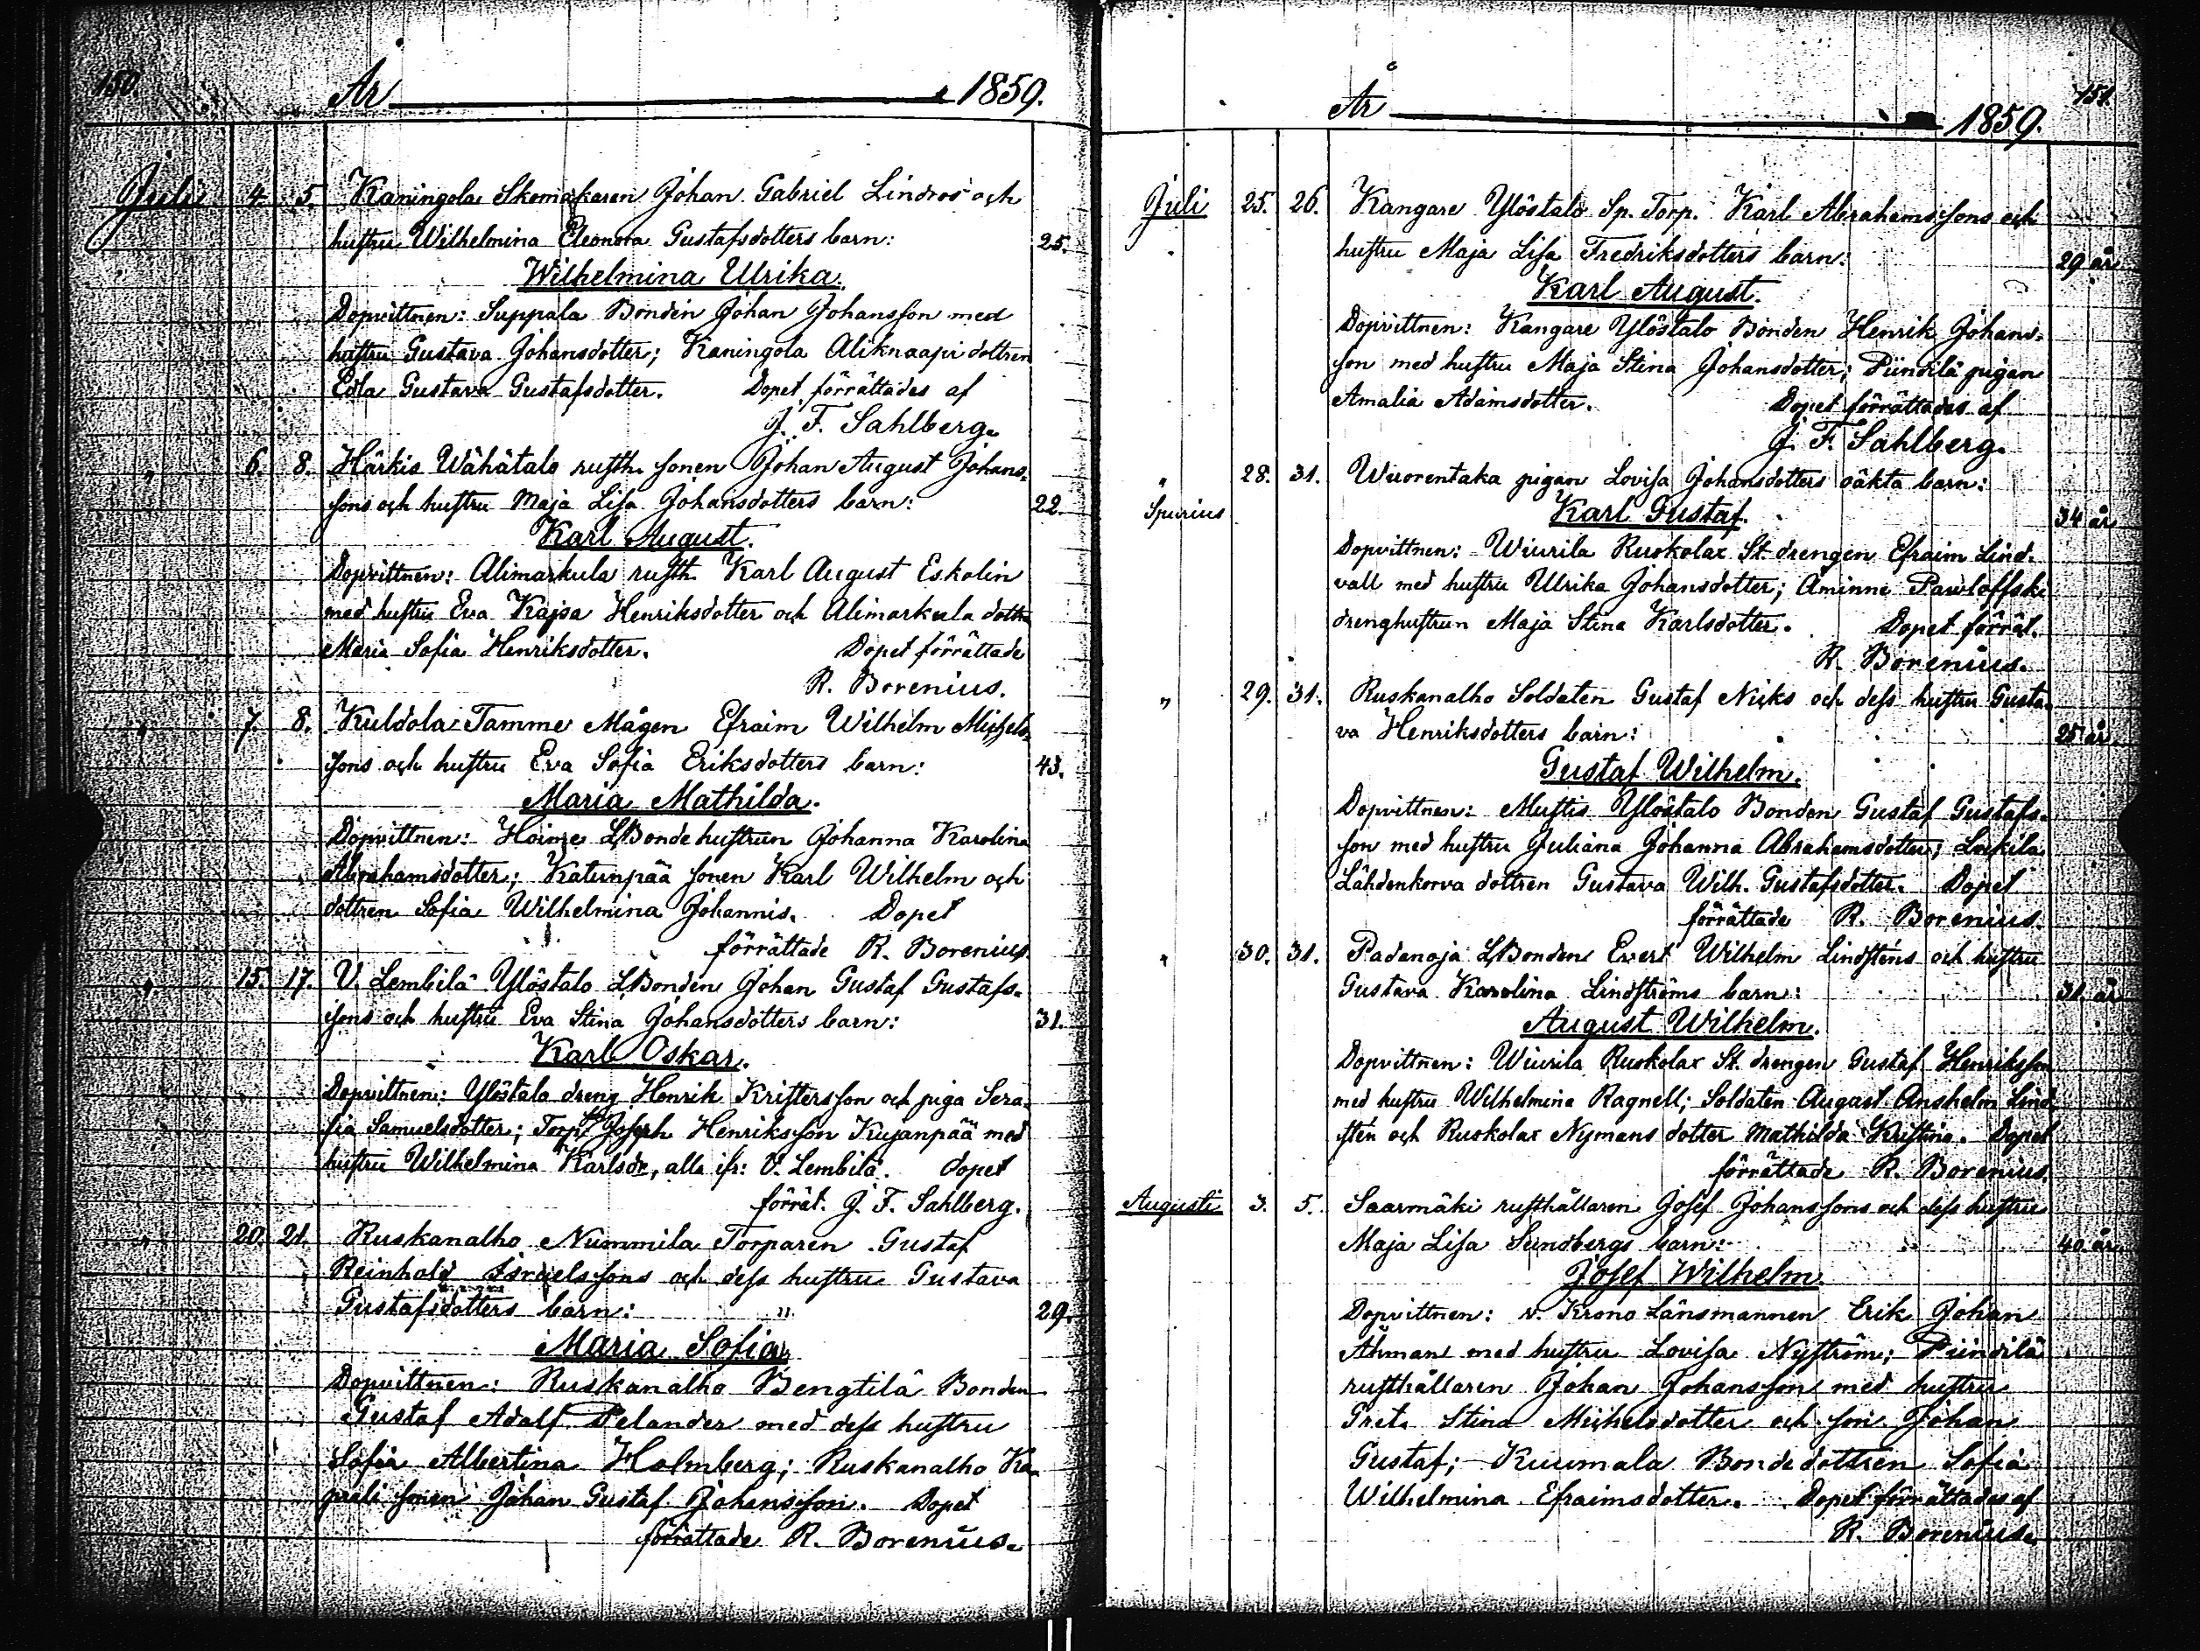 150.
År 1859.
Juli 4. 5. Kaningola Skomakaren Johan Gabriel Lindros och
hustru Wilhelmina Eleonora Gustafsdotters barn: 25.
Wilhelmina Ulrika.
Dopvittnen: Suppala Bonden Johan Johansson med
hustru Gustava Johansdotter; Kaningola Aliknaapi dottren
Edla Gustava Gustafsdotter. Dopet förrättades af
J. F. Sahlberg.
" 6. 8. Härkis Wähätalo rusth. sonen Johan August Johans-
sons och hustru Maja Lisa Johansdotters barn: 22.
Karl August.
Dopvittnen: Alimarkula rusth. Karl August Eskolin
med hustru Eva Kajsa Henriksdotter och Alimarkula dottr.
Maria Sofia Henriksdotter. Dopet förrättade
R. Borenius.
" 7. 8. Kuldola Tamme Mågen Efraim Wilhelm Michels-
sons och hustru Eva Sofia Eriksdotters barn: 43.
Maria Mathilda.
Dopvittnen: LBondehustrun Johanna Karolina
Abrahamsdotter; Katunpää sonen Karl Wilhelm och
dottren Sofia Wilhelmina Johannis. Dopet
förrättade R. Borenius.
" 15. 17. V. Lembilä Ylöstalo LBonden Johan Gustaf Gustafs-
sons och hustru Eva Stina Johansdotters barn: 31.
Karl Oskar.
Dopvittnen: Ylöstalo dreng Henrik Kristersson och piga Sera-
fia Samuelsdotter; Torp. Joseph Henriksson Kujanpää med
hustru Wilhelmina Karlsdr, alla ifr: V. Lembilä. Dopet
förrät. J. F. Sahlberg.
" 20. 21. Ruskanalho Nummila Torparen Gustaf
Reinhold Israelssons och dess hustru Gustava
Gustafsdotters barn: 29.
Maria Sofia.
Dopvittnen: Ruskanalho Bengtilä Bonden
Gustaf Adolf Pelander med dess hustru
Sofia Albertina Holmberg; Ruskanalho
sonen Johan Gustaf Johansson. Dopet
förrättade R. Borenius.
151.
År 1859.
Juli 25. 26. Kangare Ylöstalo Sp. Torp. Karl Abrahamssons och
hustru Maja Lisa Fredriksdotters barn: 29 år
Karl August.
Dopvittnen: Kangare Ylöstalo Bonden Henrik Johans-
son med hustru Maja Stina Johansdotter; Piindilä pigan
Amalia Adamsdotter. Dopet förrättades af
J. F. Sahlberg.
" 28. 31. Wuorentaka pigan Lovisa Johansdotters oäkta barn:
Spurius Karl Gustaf. 34 år
Dopvittnen: Wiurila Ruokolax St. drengen Efraim Lind-
vall med hustru Ulrika Johansdotter; Åminne Pawloffski
drenghustrun Maja Stina Karlsdotter. Dopet förrät.
R. Borenius.
" 29. 31. Ruskanalho Soldaten Gustaf Nicks och dess hustru Gusta-
va Henriksdotters barn: 25 år.
Gustaf Wilhelm.
Dopvittnen: Mustis Ylöstalo Bonden Gustaf Gustafs-
son med hustru Juliana Johanna Abrahamsdotter; Lukila
Lähdenkorva dottren Gustava Wilh. Gustafsdotter. Dopet
förrättade R. Borenius.
" 30. 31. Padanoja LBonden Evert Wilhelm Lindsténs och hustru
Gustava Karolina Lindströms barn: 31 år
August Wilhelm.
Dopvittnen: Wiurila Ruokolax St. drengen Gustaf Henriksson
med hustru Wilhelmina Ragnell; Soldaten August Anshelm Lind-
stén och Ruokolax Nymans dotter Mathilda Kristina. Dopet
förrättade R. Borenius.
Augusti 3. 5. Saarmäki rusthållaren Josef Johanssons och dess hustru
Maja Lisa Sundbergs barn: 40 år.
Josef Wilhelm.
Dopvittnen: v. Krono Länsmannen Erik Johan
Åhman med hustru Lovisa Nyström; Piindilä
rusthållaren Johan Johansson med hustru
Greta Stina Michelsdotter och son Johan
Gustaf; Kuumala Bondedottren Sofia
Wilhelmina Efraimsdotter. Dopet förrättades af
R. Borenius.